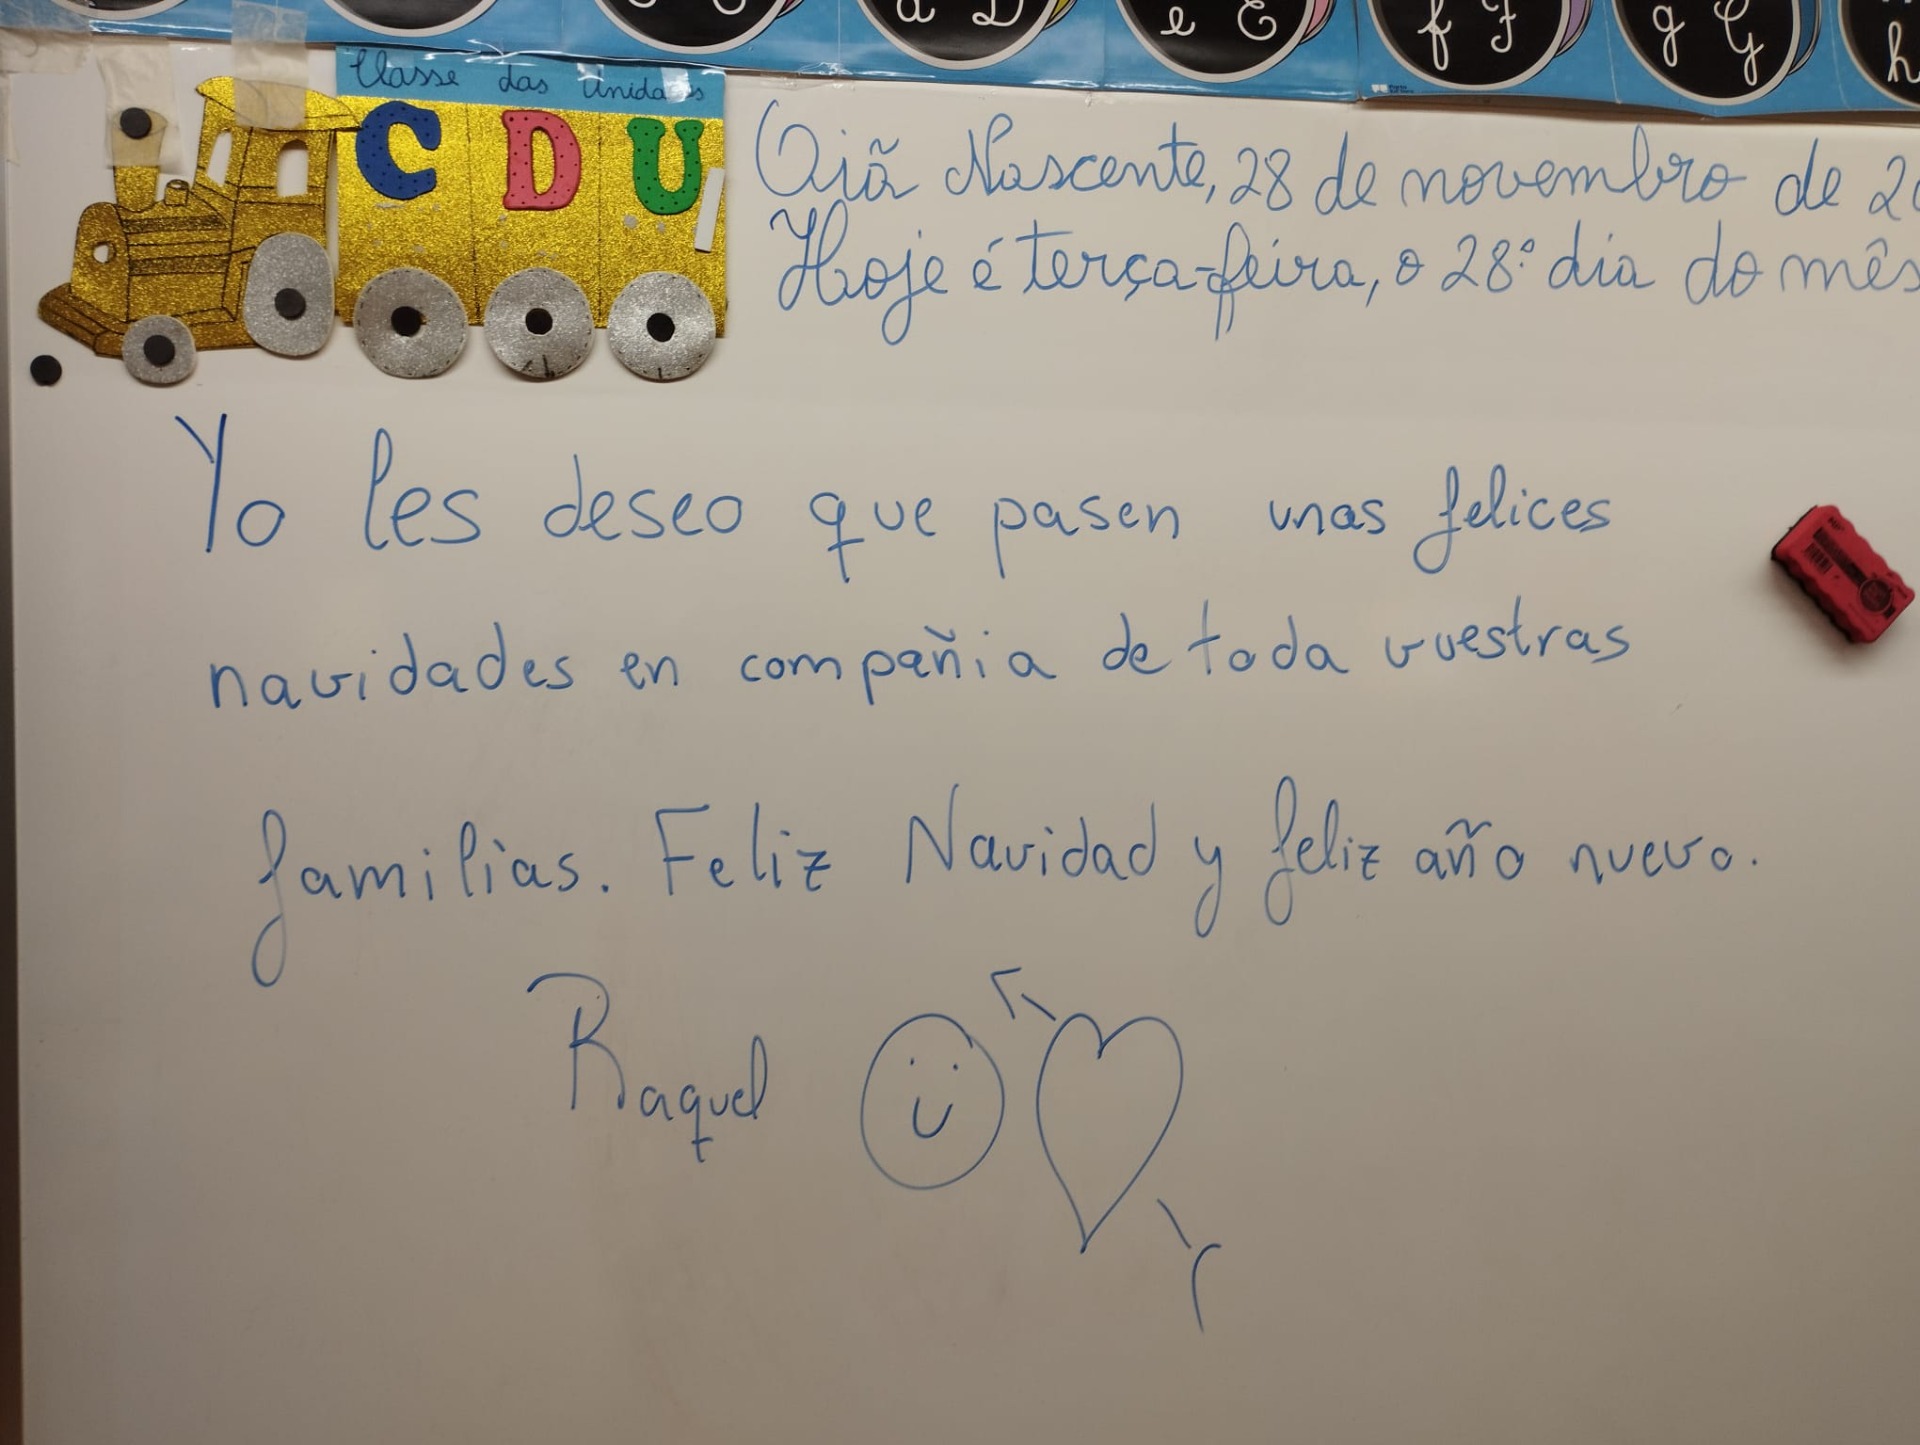 a D
e E
f F
g G
h
Classe das Unidades
C D U
Oiã Nascente, 28 de novembro de 2
Hoje é terça-feira, o 28.º dia do mês
Yo les deseo que pasen unas felices
navidades en compañia de toda vuestras
familias. Feliz Navidad y feliz año nuevo.
Raquel